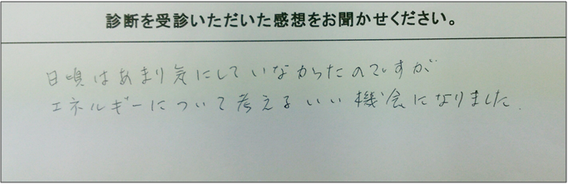 診断を受診いただいた感想をお聞かせください。
日頃はあまり気にしていなかったのですが
エネルギーについて考えるいい機会になりました.